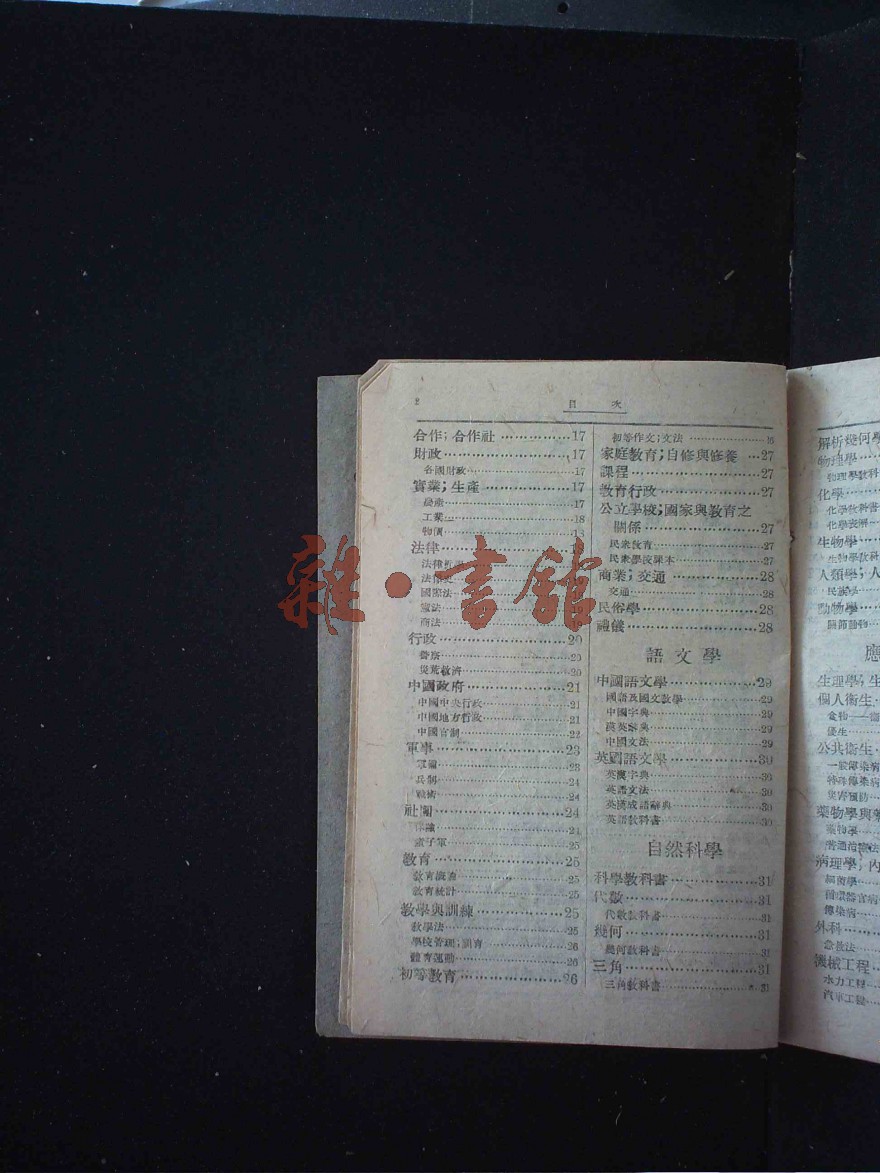 2
目 次
合作;合作社 17
財政 17
各國財政 17
實業;生產 17
農產 17
工業 18
物價 18
法律
法律史
國際法
憲法
商法
行政 20
警察 20
災荒救濟 20
中國政府 21
中國中央行政 21
中國地方行政 21
中國官制 22
軍事 23
軍備 23
兵制 24
戰術 24
社團 24
24
童子軍 25
教育 25
教育 25
教育統計 25
教學與訓練 25
教學法 25
學校管理;訓育 26
體育運動 26
初等教育 26
初等作文;文法
家庭教育;自修與修養 27
課程 27
教育行政 27
公立學校;國家與教育之
關係 27
民衆教育 27
民衆學校課本 27
商業;交通 28
交通 28
民俗學 28
禮儀 28
語文學
中國語文學 29
國語及國文教學 29
中國字典 29
漢英辭典 29
中國文法 29
英國語文學 30
英漢字典 30
英語文法 30
英國成語辭典 30
英語教科書 30
自然科學
科學教科書 31
代數 31
代數教科書 31
幾何 31
幾何教科書 31
三角 31
三角教科書 31
解析幾何學
物理學
物理學教科
化學
化學教科書
化學表解
生物學
生物學教科
人類學;人
民族學
動物學
節動物
應
生理學;生
個人衞生
食物
優生
公共衞生
一般傳染病
特殊傳染病
災害預防
藥物學與
藥物學
普通治療法
病理學;內
細菌學
循環器官病
傳染病
外科
急救法
機械工程
水力工程
汽車工程
雜·書館